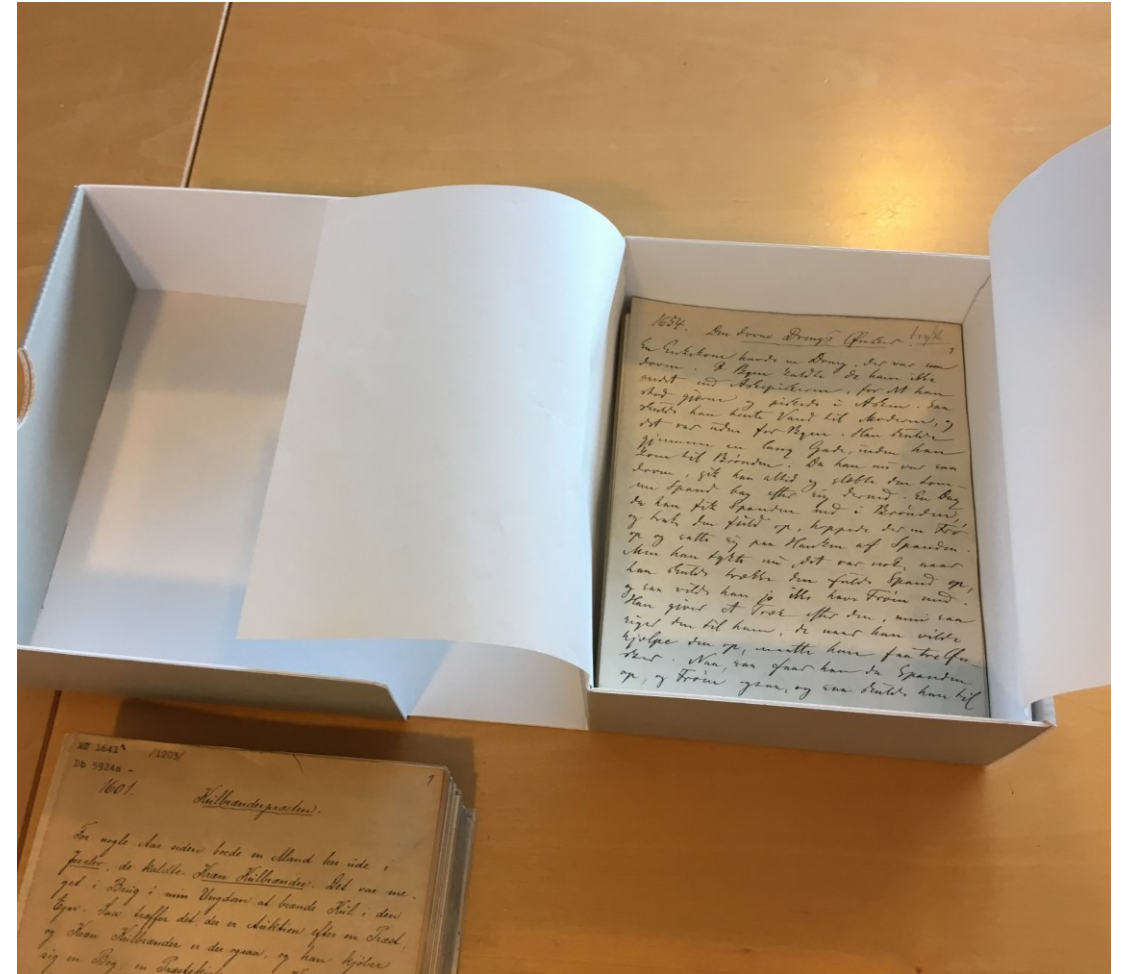 1654. Den dovne Drengs Ønsker.
1
En Enkekone havde en Dreng, der var saa
doven. I Byen kaldte de ham ikke
andet end Askepiskeren, for det han
stod gjerne og piskede i Asken. Saa
skulde han hente Vand til Moderen, og
det var uden for Byen. Han skulde
gjennem en lang Gade, inden han
kom til Brønden. Da han nu var saa
doven, gik han altid og slæbte den tom-
me Spand bag efter sig dermed. En Dag
da han fik Spanden ned i Brønden,
og trak den fuld op, hoppede der en Frø
op og satte sig paa Hanken af Spanden.
Men han tykte nu, det var nok, naar
han skulde trække den fulde Spand op,
og saa vilde han jo ikke have Frøen med.
Han giver et Træk efter den, men saa
siger den til ham, te naar han vilde
hjælpe den op, maatte han faa tre Øn-
sker. Naa, saa faar han da Spanden
op, og Frøen ogsaa, og saa skulde han til
1641 /1203/
Db 5924a -
1
1601. Kulbrænderpræsten.
For nogle Aar siden boede en Mand her ude i
de kaldte Kræn Kulbrænder. Det var me-
get i Brug i min Ungdom at brænde Kul i den
Egn. Saa træffer det, der er Auktion efter en Præst,
og Kræn Kulbrænder er der ogsaa, og han kjøber
sig en Bog, en